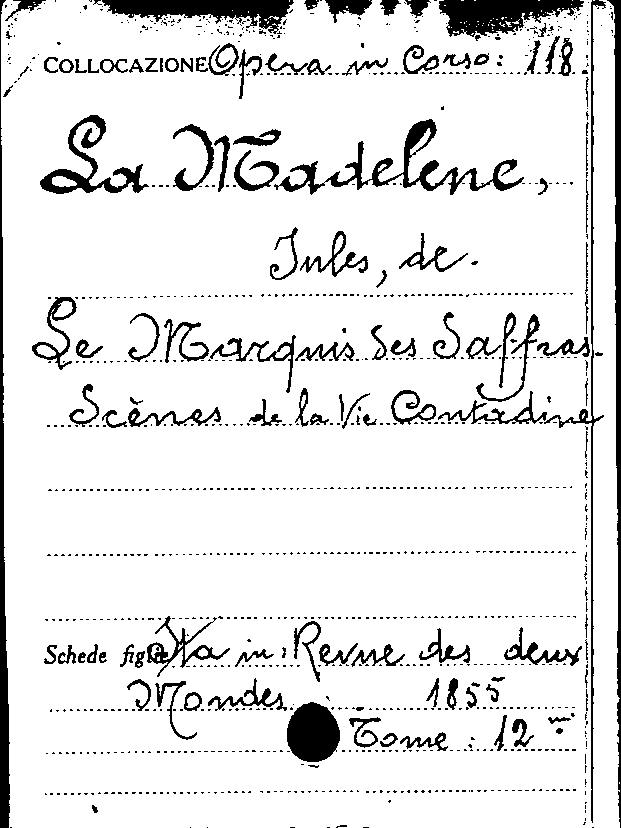 COLLOCAZIONE Opera in Corso: 118.
La Madelene,
Jules, de.
Le Marquis des Saffras.
Scènes de la Vie Contadine
Schede figlie Sta in: Revue des deux
Mondes 1855
Tome: 12